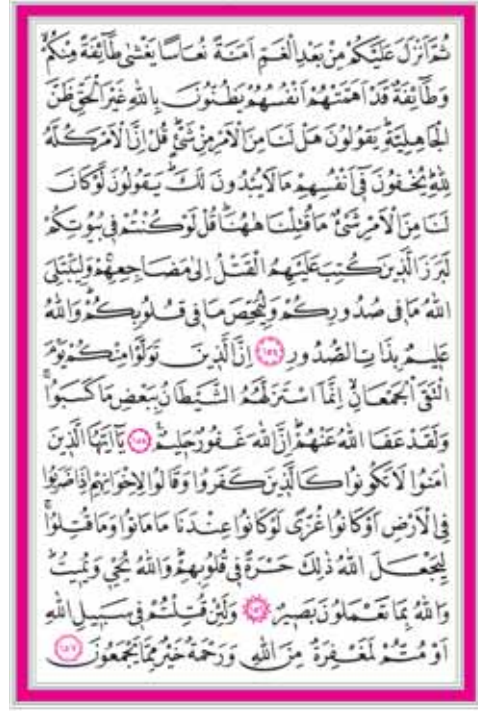 ثُمَّ اَنْزَلَ عَلَيْكُمْ مِنْ بَعْدِ الْغَمِّ اَمَنَةً نُعَاسًا يَغْشٰى طَٓائِفَةً مِنْكُمْۙ
وَطَٓائِفَةٌ قَدْ اَهَمَّتْهُمْ اَنْفُسُهُمْ يَظُنُّونَ بِاللّٰهِ غَيْرَ الْحَقِّ ظَنَّ
الْجَاهِلِيَّةِۜ يَقُولُونَ هَلْ لَنَا مِنَ الْاَمْرِ مِنْ شَيْءٍۜ قُلْ اِنَّ الْاَمْرَ كُلَّهُ
لِلّٰهِۜ يُخْفُونَ فٓي اَنْفُسِهِمْ مَا لَا يُبْدُونَ لَكَۜ يَقُولُونَ لَوْ كَانَ
لَنَا مِنَ الْاَمْرِ شَيْءٌ مَا قُتِلْنَا هٰهُنَاۜ قُلْ لَوْ كُنْتُمْ فٖي بُيُوتِكُمْ
لَبَرَزَ الَّذٖينَ كُتِبَ عَلَيْهِمُ الْقَتْلُ اِلٰى مَضَاجِعِهِمْۚ وَلِيَبْتَلِيَ
اللّٰهُ مَا فٖي صُدُورِكُمْ وَلِيُمَحِّصَ مَا فٖي قُلُوبِكُمْۜ وَاللّٰهُ
عَلٖيمٌ بِذَاتِ الصُّدُورِ ﴿١٥٤﴾ اِنَّ الَّذٖينَ تَوَلَّوْا مِنْكُمْ يَوْمَ
الْتَقَى الْجَمْعَانِۙ اِنَّمَا اسْتَزَلَّهُمُ الشَّيْطَانُ بِبَعْضِ مَا كَسَبُواۚ
وَلَقَدْ عَفَا اللّٰهُ عَنْهُمْۜ اِنَّ اللّٰهَ غَفُورٌ حَلٖيمٌ ﴿١٥٥﴾ يَٓا اَيُّهَا الَّذٖينَ
اٰمَنُوا لَا تَكُونُوا كَالَّذٖينَ كَفَرُوا وَقَالُوا لِاِخْوَانِهِمْ اِذَا ضَرَبُوا
فِي الْاَرْضِ اَوْ كَانُوا غُزًّى لَوْ كَانُوا عِنْدَنَا مَا مَاتُوا وَمَا قُتِلُواۚ
لِيَجْعَلَ اللّٰهُ ذٰلِكَ حَسْرَةً فٖي قُلُوبِهِمْۜ وَاللّٰهُ يُحْيٖ وَيُمٖيتُۜ
وَاللّٰهُ بِمَا تَعْمَلُونَ بَصٖيرٌ ﴿١٥٦﴾ وَلَئِنْ قُتِلْتُمْ فٖي سَبٖيلِ اللّٰهِ
اَوْ مُتُّمْ لَمَغْفِرَةٌ مِنَ اللّٰهِ وَرَحْمَةٌ خَيْرٌ مِمَّا يَجْمَعُونَ ﴿١٥٧﴾